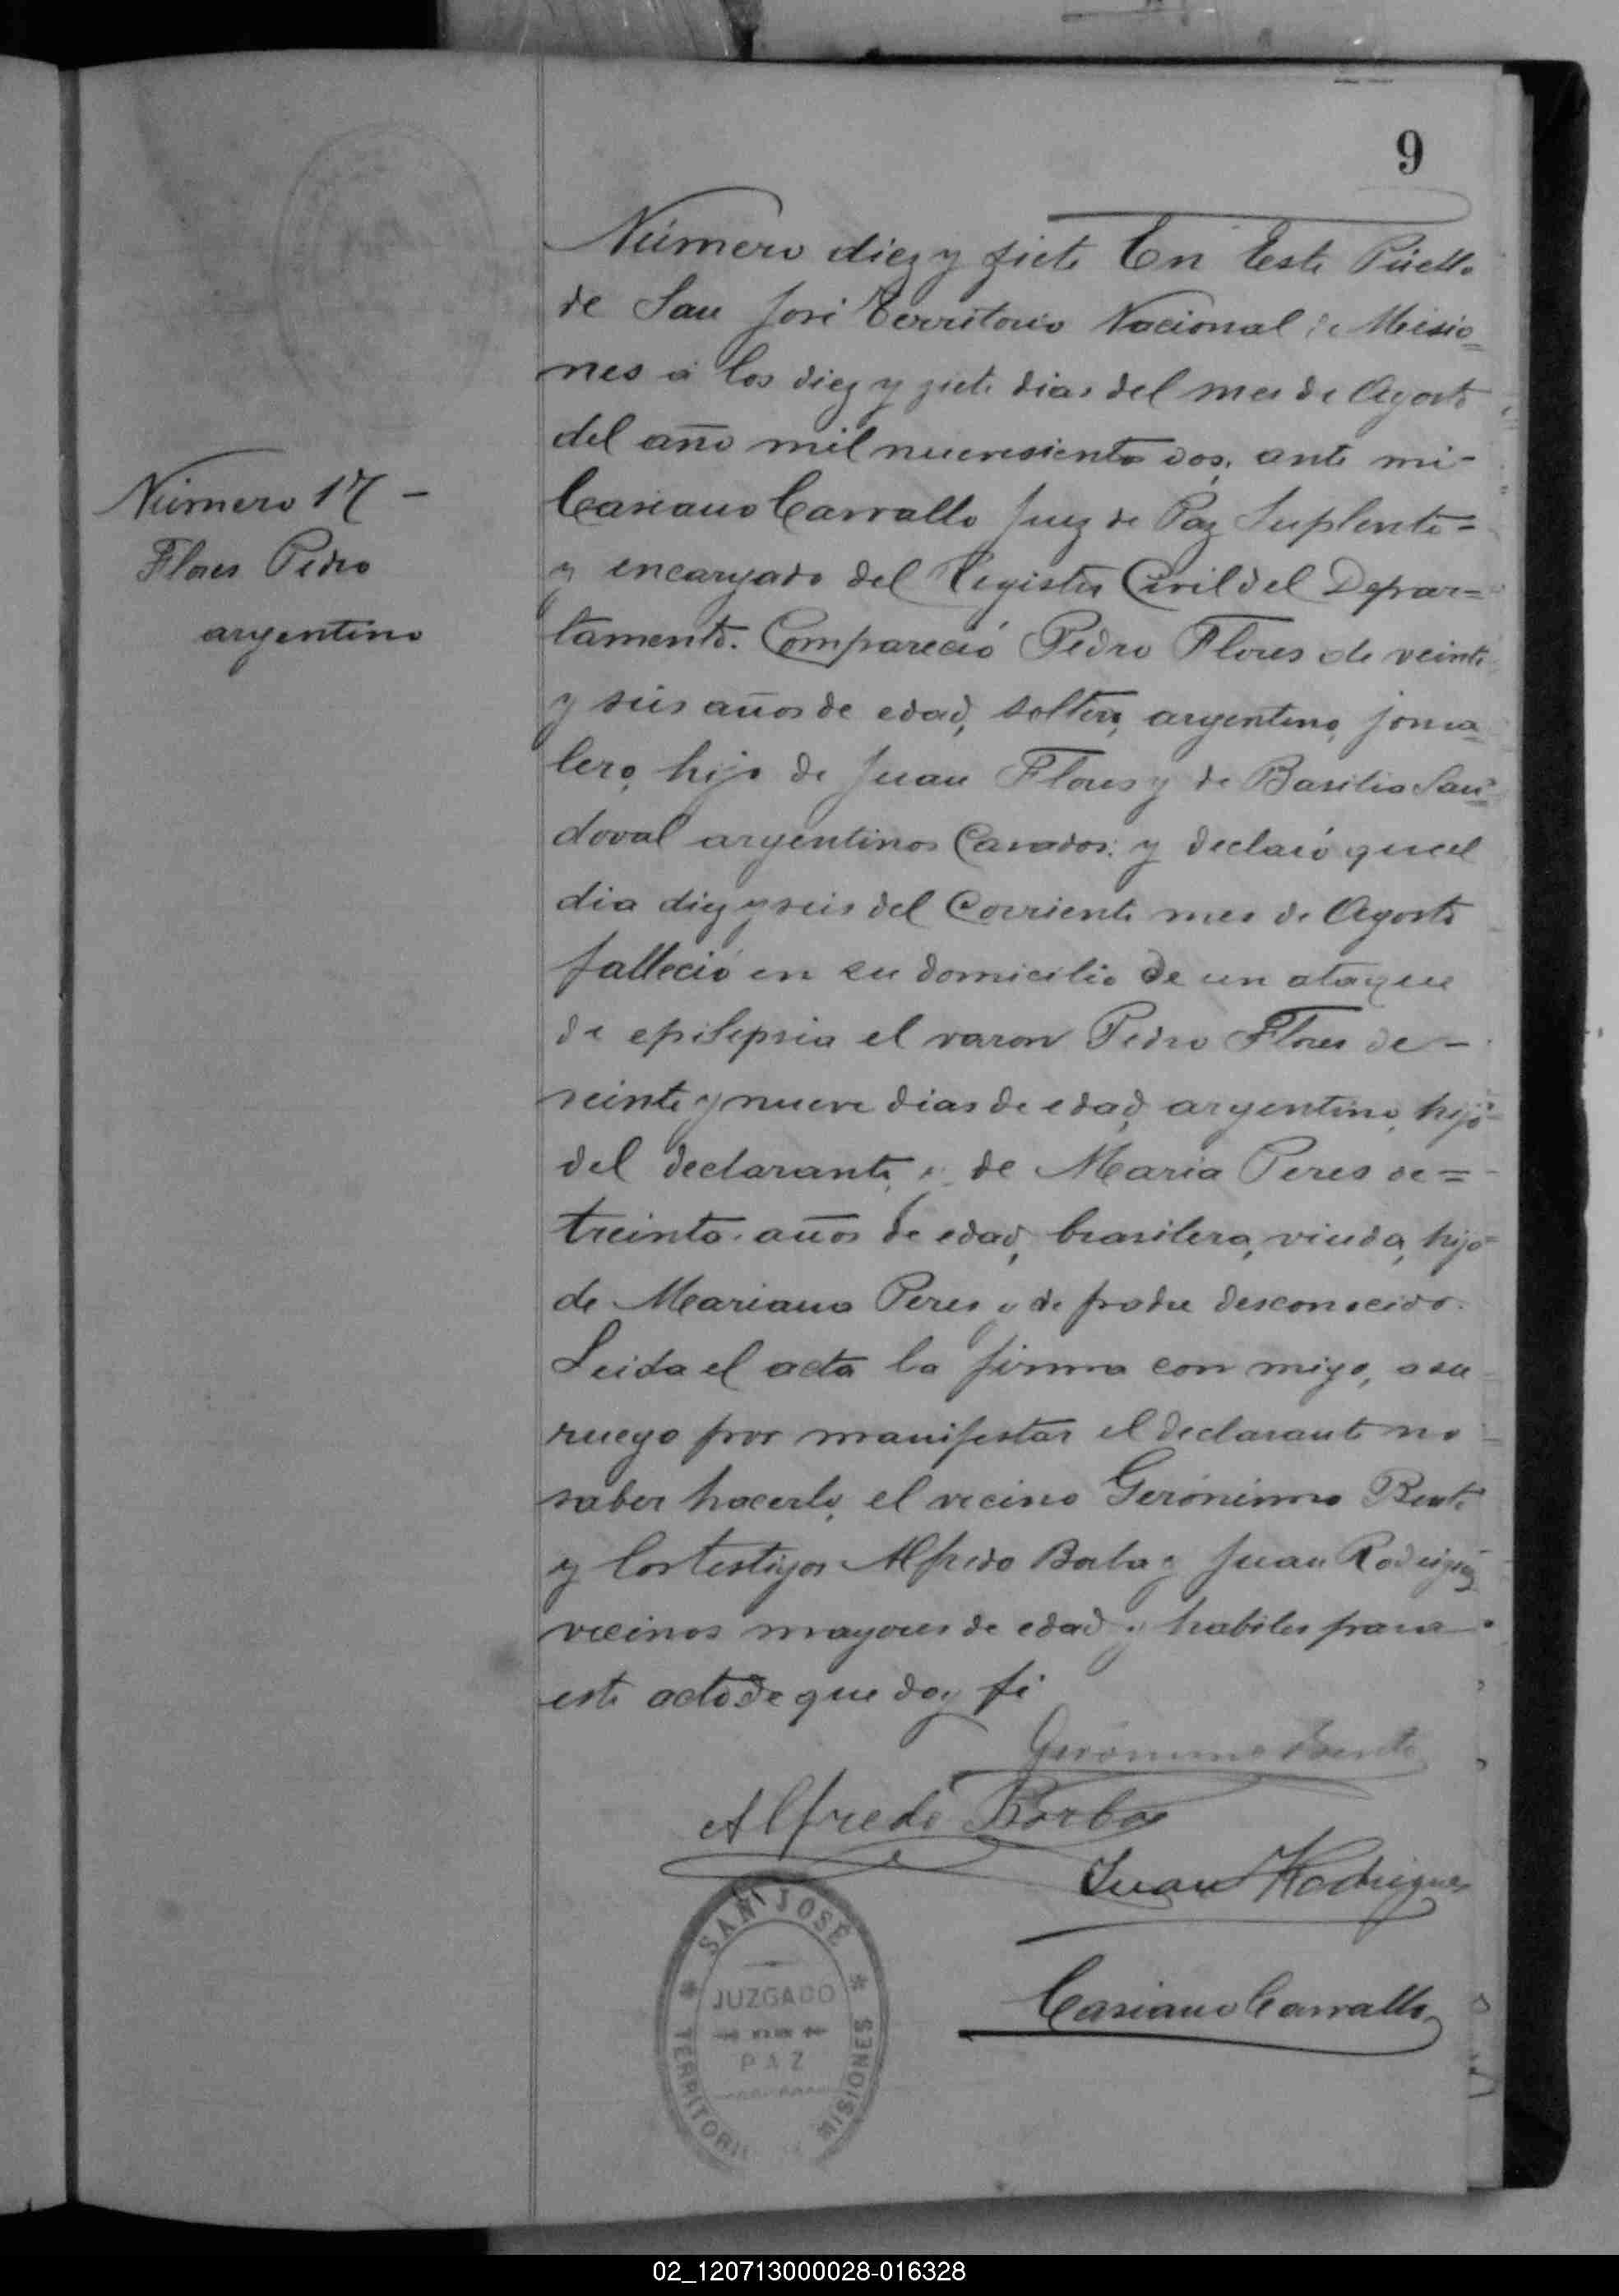 9
Número diez y siete En Este Pueblo
de San José Territorio Nacional de Misio=
nes a los diez y siete dias del mes de Agosto
del año mil nuevesiento dos, ante mi-
Número 17 -
Casiano Carvallo Juez de Paz Suplente-
Flores Pedro
y encargado del Registro Civil del Depar=
argentino
tamento. Compareció Pedro Flores de veinte
y seis años de edad, soltero, argentino, jorna=
lero, hijo de Juan Flores y de Basilia San=
doval argentinos Casados: y declaró que el
dia diez y seis del Corriente mes de Agosto
falleció en su domicilio de un ataque
de epilepsia el varon Pedro Flores de-
veinte y nueve dias de edad, argentino, hijo
del declarante y de Maria Peres de=
treinta años de edad, brasilera, viuda, hija
de Mariana Peres y de padre desconocido.
Leida el acta la firma con migo, a su
ruego por manifestar el declarante no
saber hacerlo, el vecino Gerónimo Bente
y los testigos Alfredo Borba y Juan Rodriguez
vecinos mayores de edad y habiles para
este acto de que doy fé
Gerónimo Bente
Alfredo Borba
Juan Rodrigues
Casiano Carvallo
SAN JOSÉ
JUZGADO
PAZ
TERRITORIO
MISIONES
02_120713000028-016328